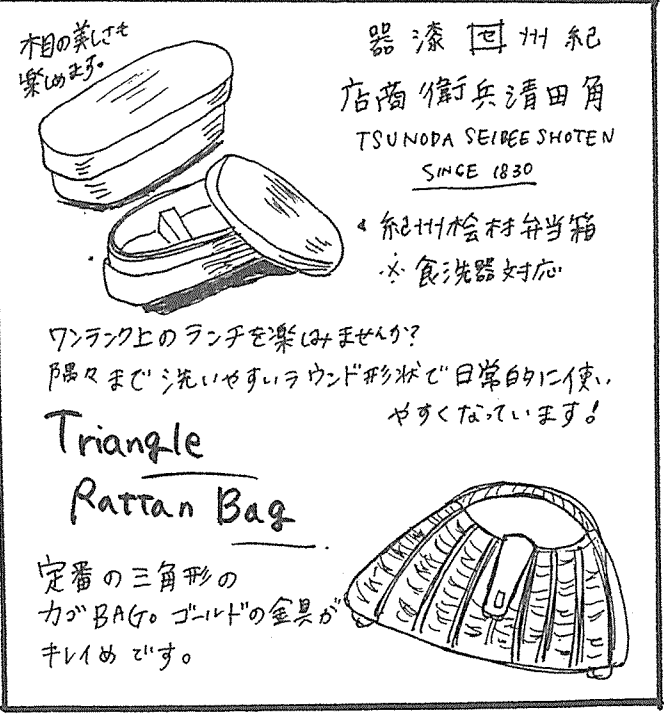 木目の美しさも
楽しめます。
器漆 㔺 州紀
店商衛兵清田角
TSUNODA SEIBEE SHOTEN
SINCE 1830
紀州桧材弁当箱
※食洗器対応
ワンランク上のランチを楽しみませんか?
隅々まで洗いやすいラウンド形状で日常的に使い
やすくなっています!
Triangle
Rattan Bag
定番の三角形の
カゴBAG。ゴールドの金具が
キレイめです。